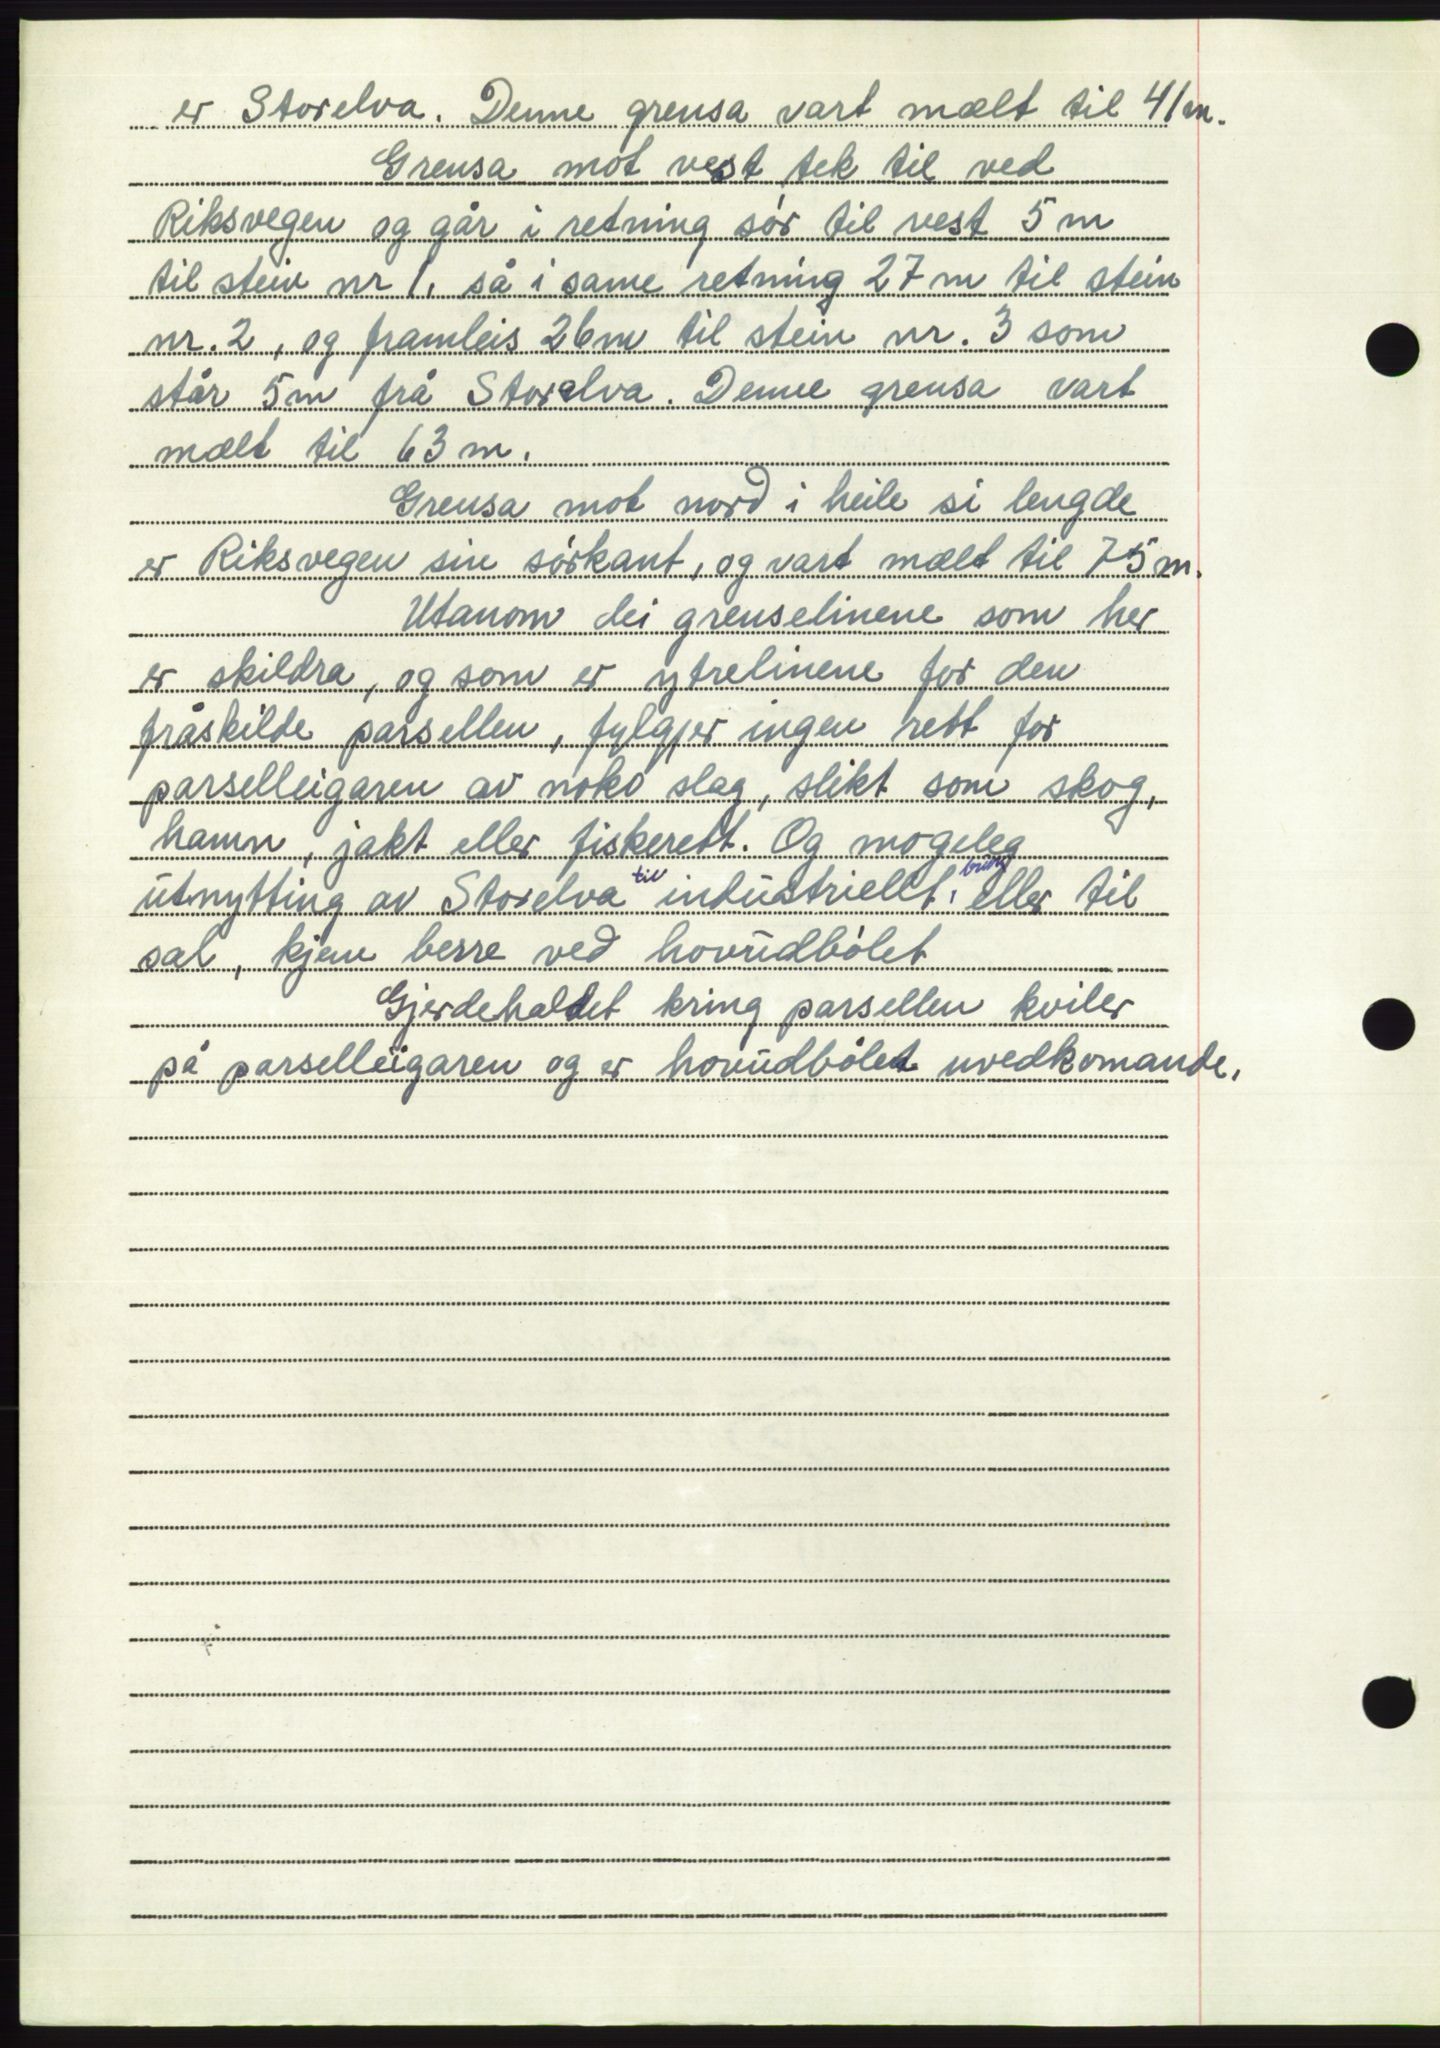 er Storelva. Denne grensa vart mælt til 41 m.
Grensa mot vest tek til ved
Riksvegen og går i retning sør til vest 5 m
til stein nr 1, så i same retning 27 m til stein
nr. 2, og framleis 26 m til stein nr. 3 som
står 5 m frå Storelva. Denne grensa vart
mælt til 63 m.
Grensa mot nord i heile si lengde
er Riksvegen sin sørkant, og vart mælt til 75 m.
Utanom dei grenselinene som her
er skildra, og som er ytrelinene for den
fråskilde parsellen, fylgjer ingen rett for
parselleigaren av noko slag, slikt som skog,
hamn, jakt eller fiskerett. Og mogeleg
utnytting av Storelva til industriellt bruk eller til
sal, kjem berre ved hovudbølet
Gjerdehaldet kring parsellen kviler
på parselleigaren og er hovudbølet uvedkomande.